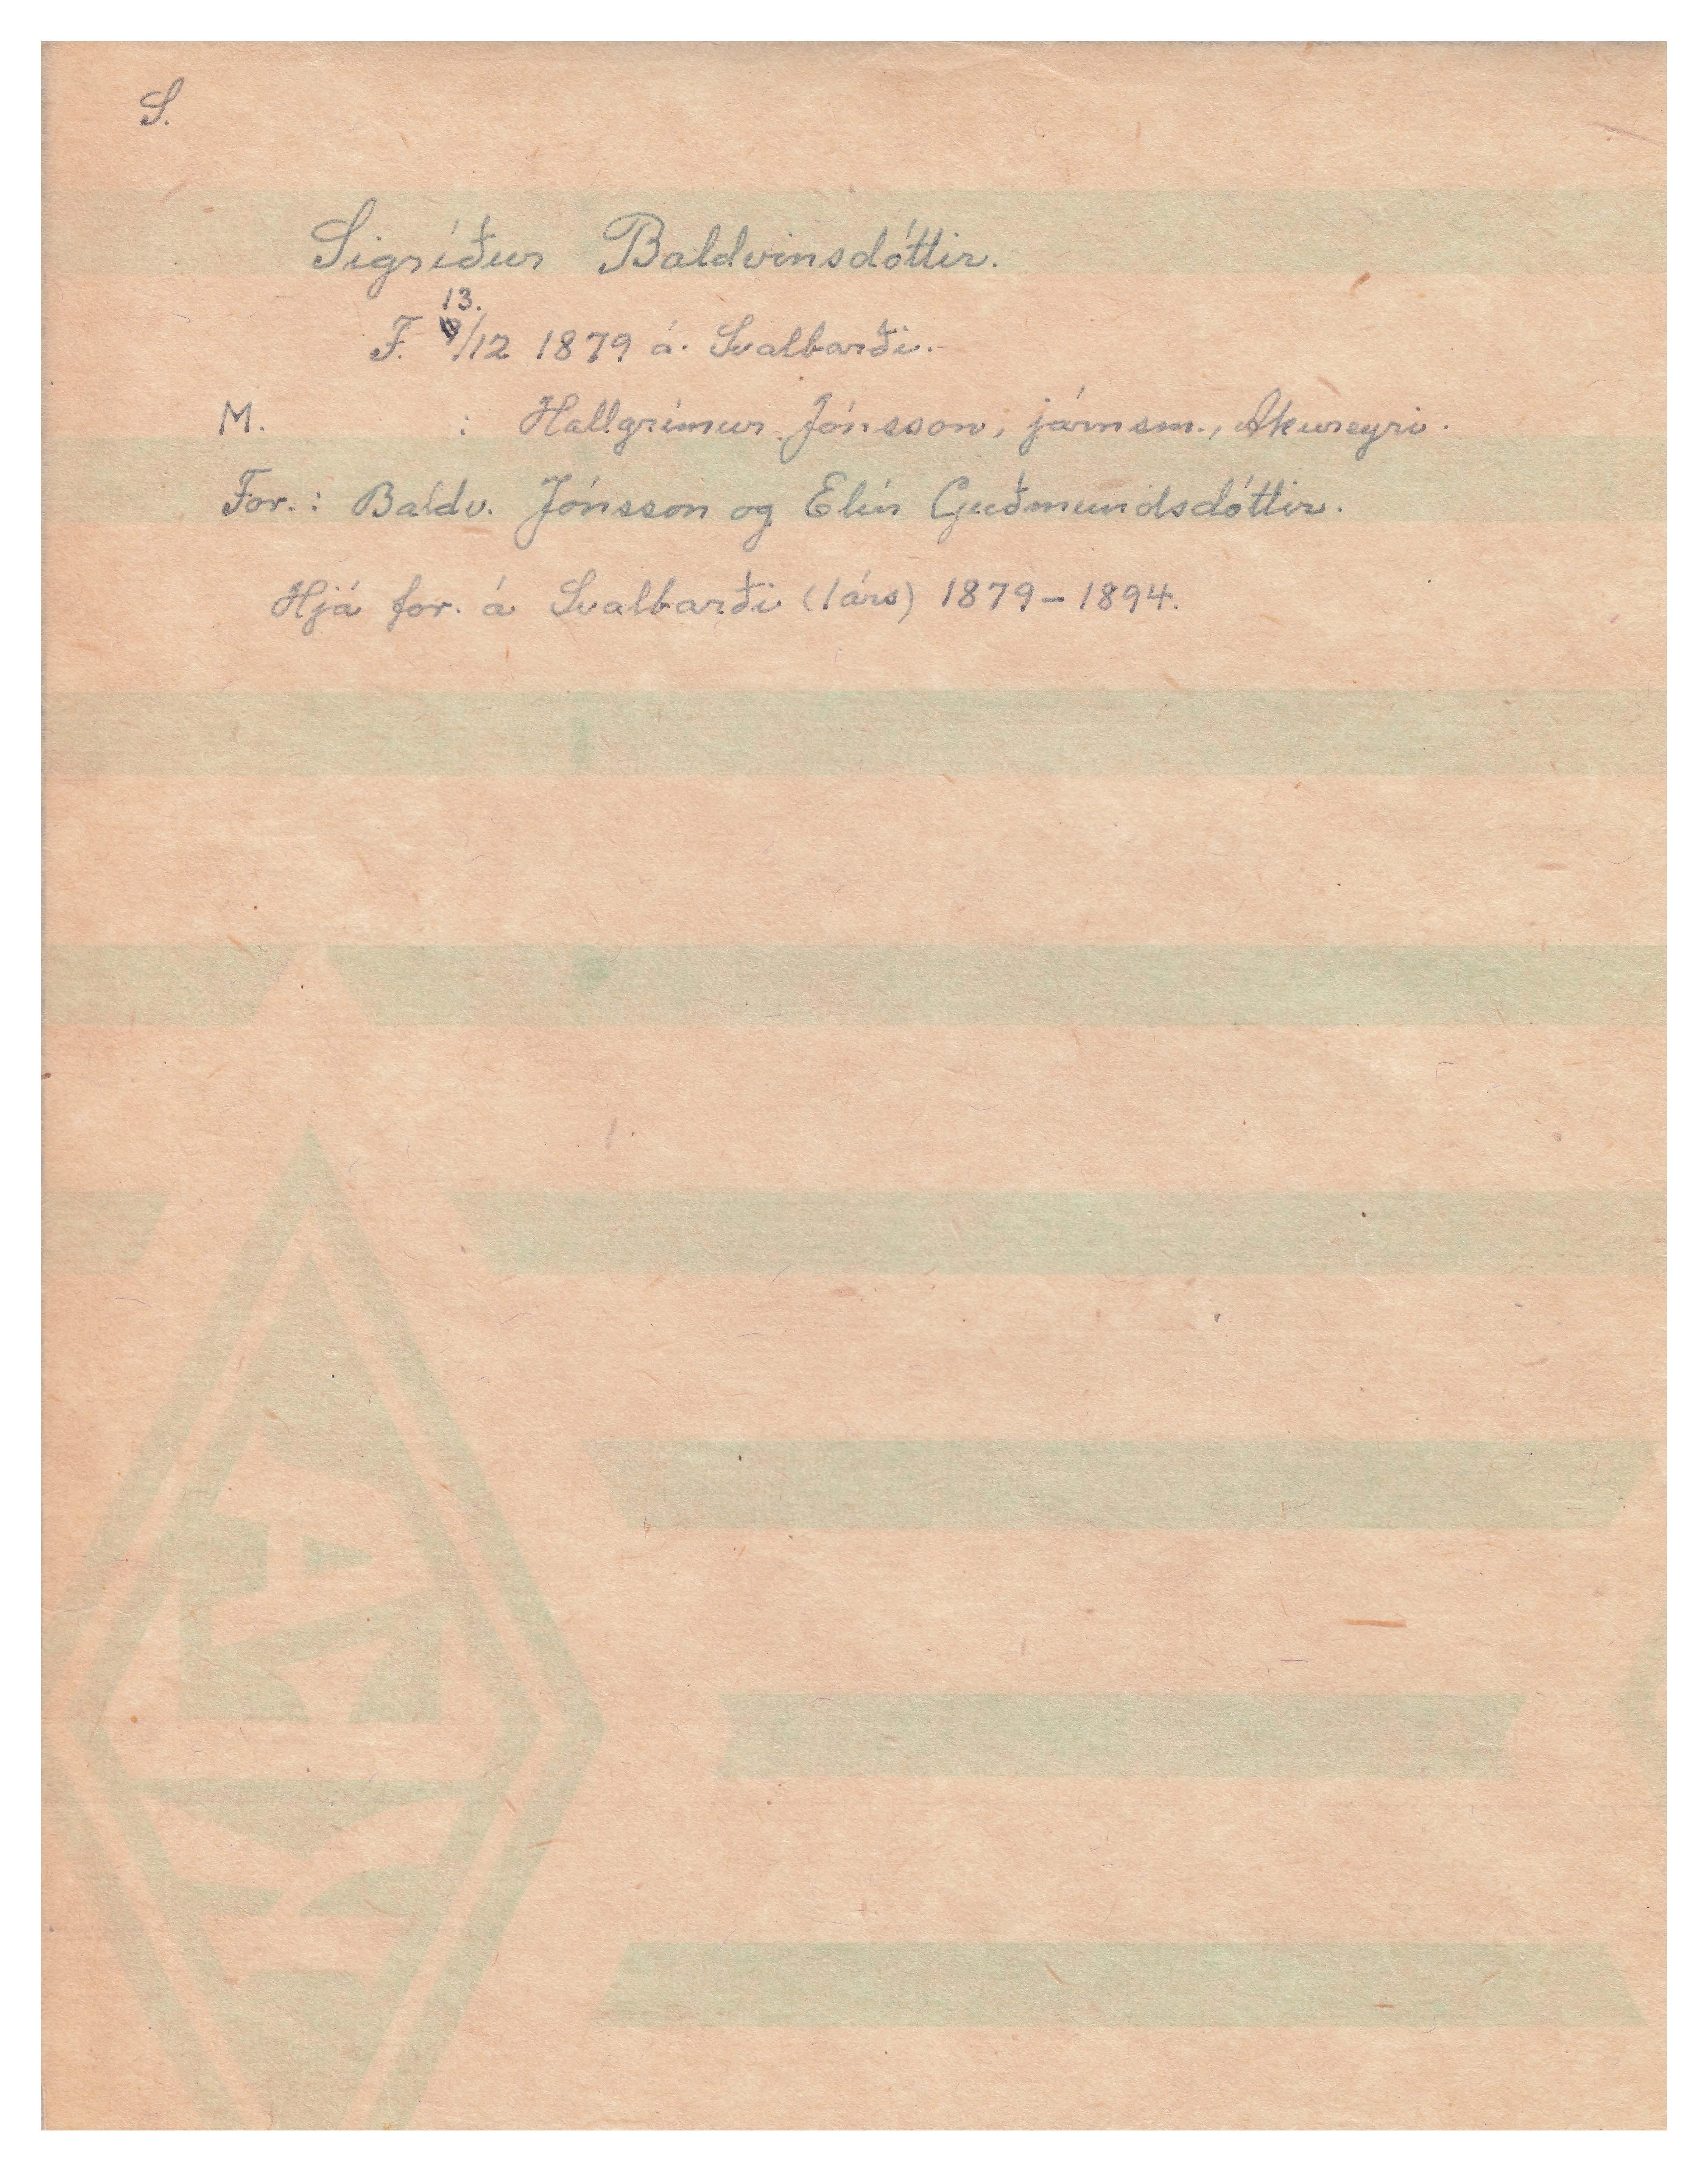 S.
Sigríður Baldvinsdóttir.
F. 13./12 1879 á Svalbarði.
M. : Hallgrímur Jónsson, járnsm., Akureyri.
For.: Baldv. Jónsson og Elín Guðmundsdóttir.
Hjá for. á Svalbarði (1árs) 1879-1894.